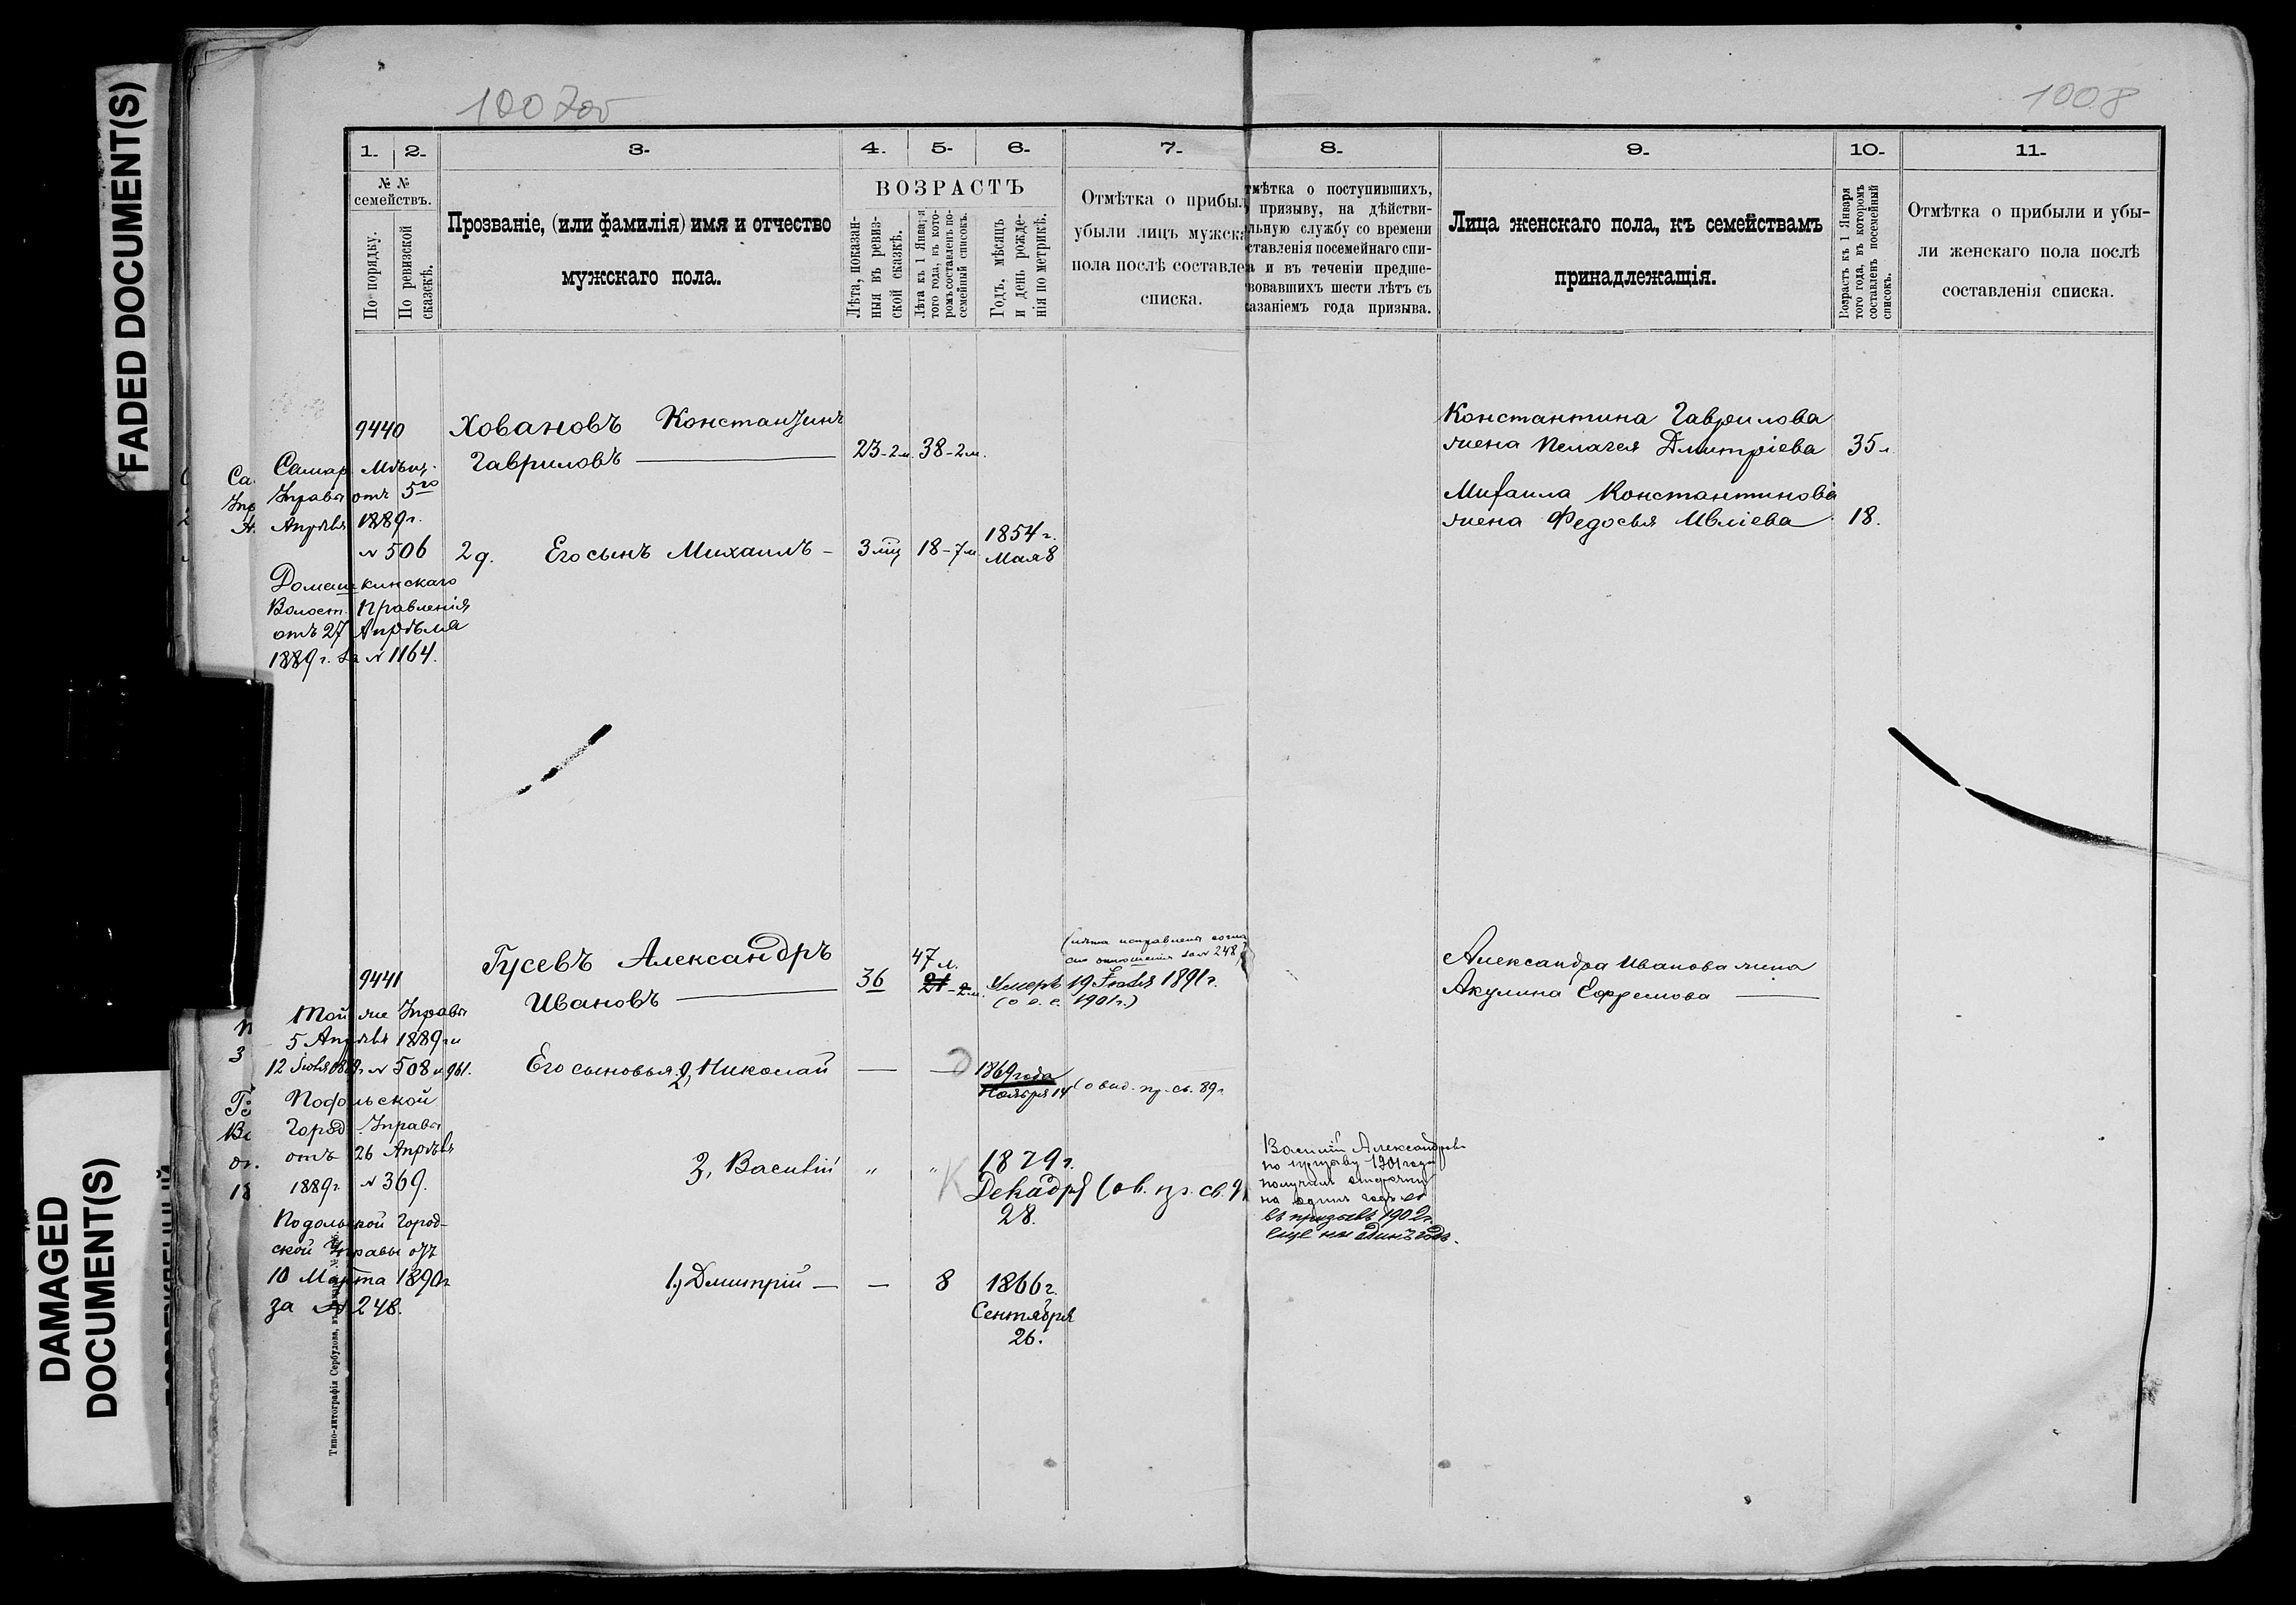 FADED DOCUMENT(S)
DAMAGED
DOCUMENT(S)
1007об
1008
1. 2. 3. 4. 5. 6. 7. 8. 9. 10. 11.
№ №
семействъ.
По порядку.
По ревизской
сказскѣ.
Прозваніе, (или фамилія) имя и отчество
мужскаго пола.
ВОЗРАСТЪ
Лѣта, показан-
ныя въ ревиз-
ской сказкѣ.
Лѣта къ 1 Января
того года, въ кото-
ромъ составленъ по-
семейный списокъ.
Годъ, мѣсяцъ
и день рожде-
нія по метрикѣ.
Отмѣтка о прибыл
убыли лицъ мужска
пола послѣ составле
списка.
тмѣтка о поступившихъ,
призыву, на дѣйстви-
льную службу со времени
ставленія посемейнаго спи-
а и въ теченіи предше-
вовавшихъ шести лѣтъ съ
азаніемъ года призыва.
Лица женскаго пола, къ семействамъ
принадлежащія.
Возрастъ къ 1 Января
того года, въ которомъ
составленъ посемейный
списокъ.
Отмѣтка о прибыли и убы-
ли женскаго пола послѣ
составленія списка.
9440
Самар. Мѣщ.
Управы отъ 5го
Апрѣля 1889 г.
№ 506
Домашкинскаго
Волост. Правленія
отъ 27 Апрѣля
1889 г. за № 1164.
Ховановъ Константинъ
Гавриловъ 23-2м. 38-2м.
2д. Его сынъ Михаилъ - 3 мц 18-7м
1854 г.
Мая 8
Константина Гаврилова
жена Пелагея Дмитріева 35 л.
Михаила Константинова
жена Федосья 18.
9441
Той же Управы
5 Апрѣля 1889 г. и
12 Іюля 1889 г. № 508 и 961.
Подольской
Город. Управы
отъ 26 Апрѣля
1889 г. № 369.
Подольской Город-
ской Управы отъ
10 Марта 1890 г.
за № 248.
Гусевъ Александръ
Ивановъ 36
47 л.
21-2м.
(лѣта исправлены соглас
но отношенія за № 248)
Умеръ 19 Іюля 1891 г.
(о в. с. 1901 г.)
Александра Иванова жена
Акулина Ефремова
Его сыновья: 2, Николай
1869 года
Ноября 14 (о выд. пр. св. 89 г.
3, Василій " "
1879 г.
Декабря (о в. пр. св. 9
28.
Василій Александровъ
по призыву 1901 года
получилъ отсрочку
на одинъ годъ и
въ призывъ 1902 г.
еще на одинъ годъ.
1, Дмитрій — — 8 1866 г.
Сентября
26.
Типо-литографія Сербулова, въ